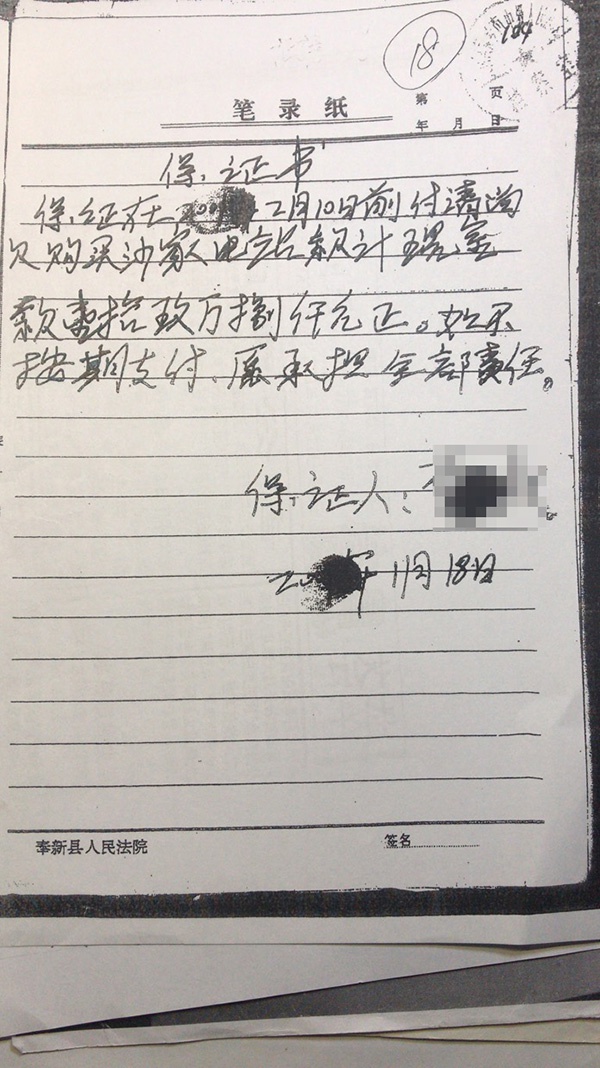 18
104
笔录纸
第 页
年 月 日
保证书
保证在200 年2月10日前付清尚
欠购买沙 电站款计现金
款壹拾玖万捌仟元正。如不
按期支付、愿承担全部责任。
保证人：
20 年11月18日
奉新县人民法院
签名